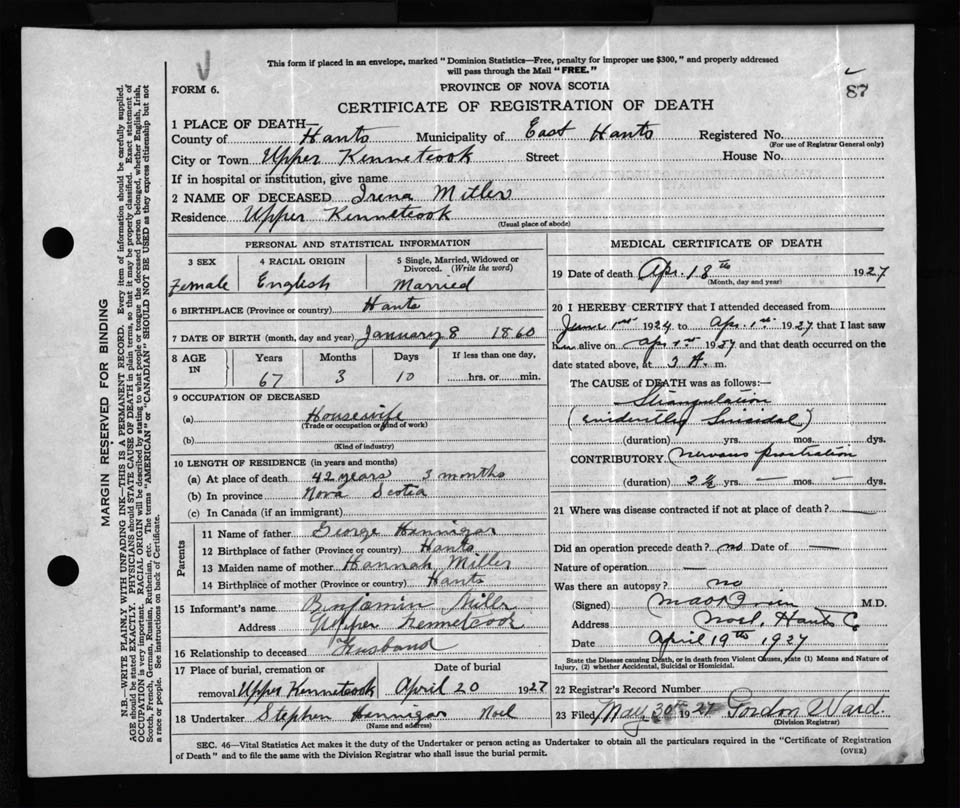 This form if placed in an envelope, marked "Dominion Statistics—Free, penalty for improper use $300," and properly addressed
will pass through the Mail "FREE."
87
FORM 6.
PROVINCE OF NOVA SCOTIA
CERTIFICATE OF REGISTRATION OF DEATH
1 PLACE OF DEATH—
County of Hants Municipality of East Hants Registered No.
(For use of Registrar General only)
City or Town Upper Kennetcook Street House No.
If in hospital or institution, give name
2 NAME OF DECEASED Irena Miller
Residence Upper Kennetcook
(Usual place of abode)
PERSONAL AND STATISTICAL INFORMATION
3 SEX 4 RACIAL ORIGIN 5 Single, Married, Widowed or
Divorced. (Write the word)
Female English Married
6 BIRTHPLACE (Province or country) Hants
7 DATE OF BIRTH (month, day and year) January 8 1860
8 AGE IN Years Months Days If less than one day,
67 3 10 hrs. or min.
9 OCCUPATION OF DECEASED
(a) Housewife
(Trade or occupation or kind of work)
(b)
(Kind of industry)
10 LENGTH OF RESIDENCE (in years and months)
(a) At place of death 42 years 3 months
(b) In province Nova Scotia
(c) In Canada (if an immigrant)
Parents
11 Name of father George Hennigar
12 Birthplace of father (Province or country) Hants
13 Maiden name of mother Hannah Miller
14 Birthplace of mother (Province or country) Hants
15 Informant's name Benjamin Miller
Address Upper Kennetcook
16 Relationship to deceased Husband
17 Place of burial, cremation or Date of burial
removal Upper Kennetcook April 20 1927
18 Undertaker Stephen Hennigar Noel
(Name and address)
MEDICAL CERTIFICATE OF DEATH
19 Date of death Apr. 18th 1927
(Month, day and year)
20 I HEREBY CERTIFY that I attended deceased from
June 1924 to Apr. 1st 1927 that I last saw
her alive on Apr 1st 1927 and that death occurred on the
date stated above, at 3 A. m.
The CAUSE of DEATH was as follows:—
Strangulation
(evidently Suicidal)
(duration) yrs. mos. dys.
CONTRIBUTORY nervous prostration
(duration) yrs. — mos. — dys.
21 Where was disease contracted if not at place of death? —
Did an operation precede death? no Date of —
Nature of operation —
Was there an autopsy? no
(Signed) M.D.
Address Noel, Hants Co
Date April 19th 1927
State the Disease causing Death, or in death from Violent Causes, state (1) Means and Nature of
Injury, (2) whether Accidental, Suicidal or Homicidal.
22 Registrar's Record Number
23 Filed May 30th 1927 Gordon Ward.
(Division Registrar)
SEC. 46—Vital Statistics Act makes it the duty of the Undertaker or person acting as Undertaker to obtain all the particulars required in the "Certificate of Registration
of Death" and to file the same with the Division Registrar who shall issue the burial permit.
(OVER)
MARGIN RESERVED FOR BINDING
N.B.—WRITE PLAINLY, WITH UNFADING INK—THIS IS A PERMANENT RECORD. Every item of information should be carefully supplied.
AGE should be stated EXACTLY. PHYSICIANS should STATE CAUSE OF DEATH in plain terms, so that it may be properly classified. Exact statement of
OCCUPATION is very important. RACIAL ORIGIN will be described by stating to what people or tongue the deceased person belonged, whether English, Irish,
Scotch, French, German, Russian, Ruthenian, etc. The terms "AMERICAN" or "CANADIAN" SHOULD NOT BE USED as they express citizenship but not
a race or people. See instructions on back of Certificate.